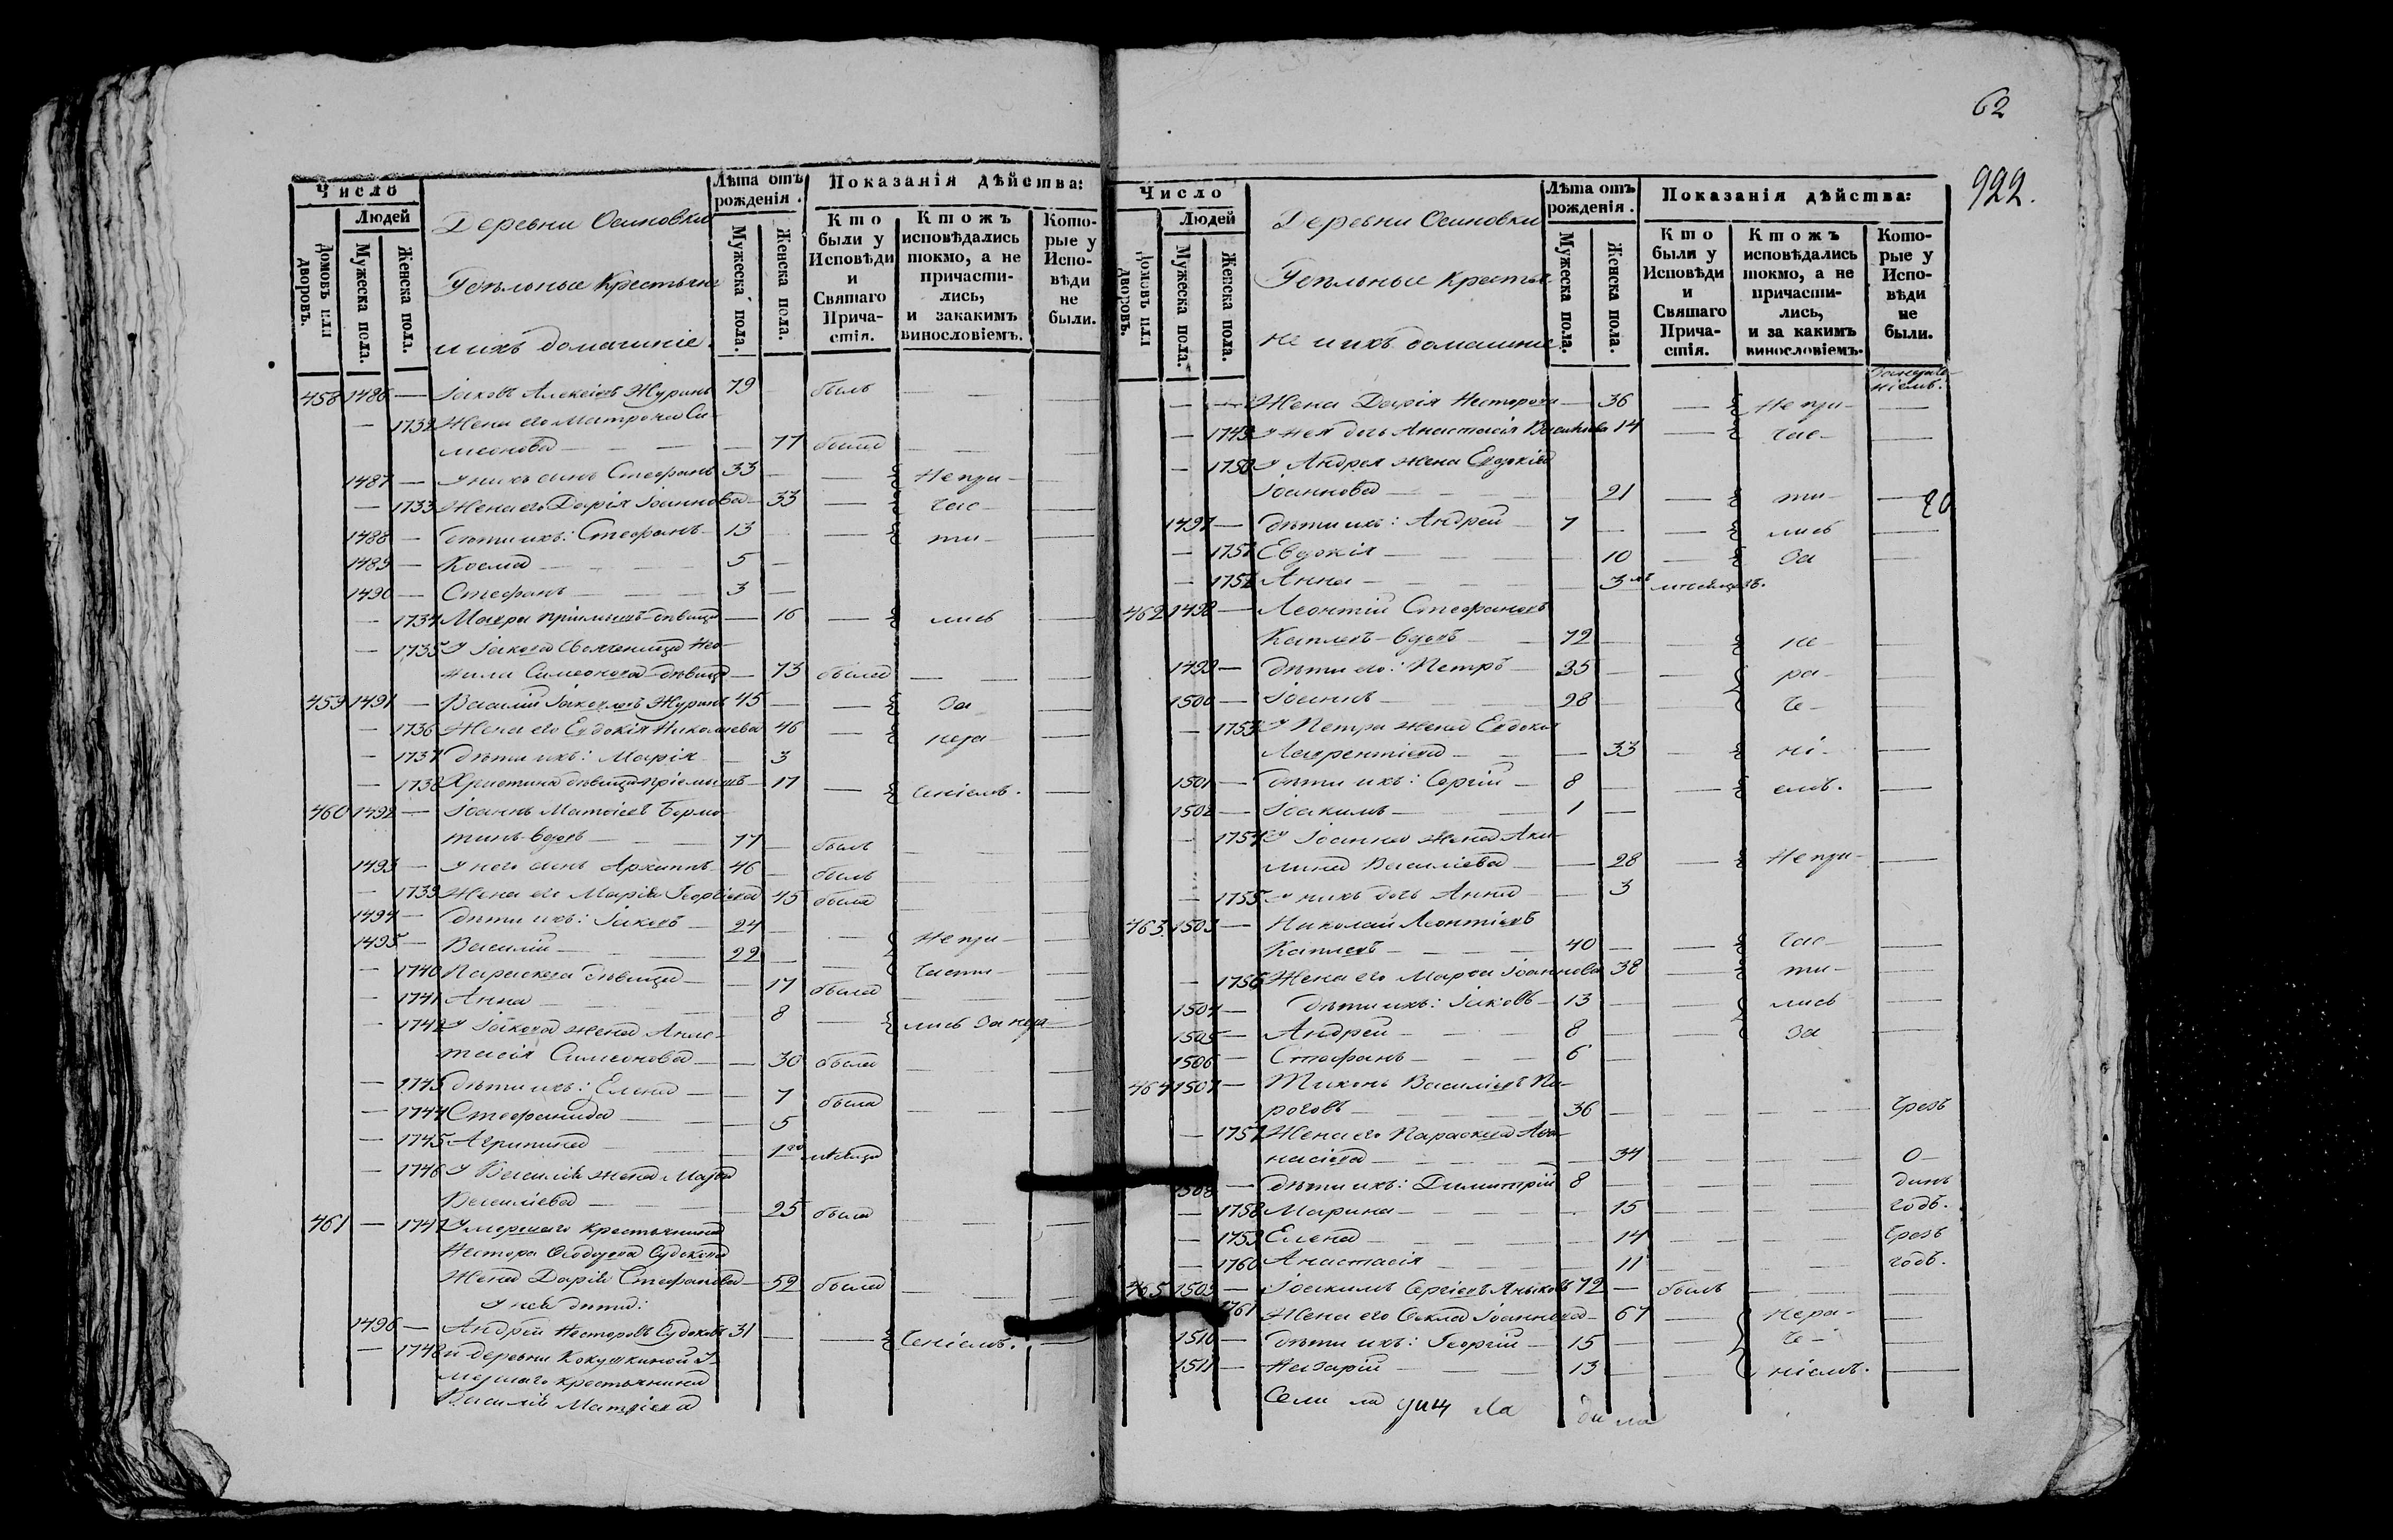 Число
Людей
Домовъ или дворовъ.
Мужеска пола.
Женска пола.
Деревни Осиновки
Удѣльные Крестьяне
и ихъ домашніе.
Лѣта отъ рожденія.
Мужеска пола.
Женска пола.
Показанія дѣйства:
Кто были у Исповѣди и Святаго Причастія.
Ктожъ исповѣдались токмо, а не причастились, и закакимъ винословіемъ.
Которые у Исповѣди не были.
458 1486 — Іаковъ Алексіевъ Журинъ 79 — былъ — —
— 1732 Жена его Матрона Си-
меонова — — 77 была — —
1487 — У нихъ сынъ Стефанъ 33 — — Не при- —
— 1733 Жена его Дарія Іоаннова — 33 — час- —
1488 — Дѣти ихъ: Стефанъ 13 — — ти- —
1489 — Косма — 5 —
1490 — Стефанъ — 3 —
— 1734 Мавра пріемышъ дѣвица — 16 — лись —
— 1735 У Іакова свояченица Нео-
нила Симеонова дѣвица — 73 была — —
459 1491 — Василій Іаковлевъ Журинъ 45 — — За —
— 1736 Жена его Евдокія Николаева 46 — нера- —
— 1737 Дѣти ихъ: Марія — 3
— 1738 Христина дѣвица пріемышъ — 17 — ченіемъ. —
460 1492 — Іоаннъ Матѳіевъ Борма-
тинъ вдовъ — 77 — былъ — —
1493 — У него сынъ Архиппъ 46 — былъ — —
— 1739 Жена его Марія Георгіева 45 была — —
1494 — Дѣти ихъ: Іаковъ — 24 — — Не при- —
1495 — Василій — 22 — — части- —
— 1740 Параскева дѣвица — 17 была — —
— 1741 Анна — — 8 — лись за нера —
— 1742 У Іакова жена Анас-
тасія Симеонова — 30 была — —
— 1743 Дѣти ихъ: Елена — 7 была — —
— 1744 Стефанида — 5
— 1745 Агрипина — 1го мѣсяца
— 1746 У Василія жена Марѳа
Василіева — 25 была — —
461 — 1747 Умершаго крестьянина
Нестора Ѳеодорова Судакова
Жена Дарія Стефанова — 52 была — —
У нея дѣти:
1496 — Андрей Несторовъ Судаковъ 31 — — ченіемъ. —
— 1748 и деревни Кокушкиной У-
мершаго крестьянина
Василія Матѳіева
62
922.
Число
Людей
Домовъ или дворовъ.
Мужеска пола.
Женска пола.
Деревни Осиновки
Удѣльные Крестья-
не и ихъ домашніе.
Лѣта отъ рожденія.
Мужеска пола.
Женска пола.
Показанія дѣйства:
Кто были у Исповѣди и Святаго Причастія.
Ктожъ исповѣдались токмо, а не причастились, и за какимъ винословіемъ.
Которые у Исповѣди не были.
— — Жена Дарія Несторова — 36 — Не при- —
— 1749 У нея дочь Анастасія Василіева 14 — час- —
— 1750 У Андрея жена Евдокія
Іоаннова — 21 — ти- —
1497 — Дѣти ихъ: Андрей 7 — — лись —
— 1751 Евдокія — 10 — За —
— 1752 Анна — 3хъ мѣсяцевъ.
462 1498 — Леонтій Стефановъ
Каплевъ вдовъ — 72 — — не —
1499 — Дѣти его: Петръ — 35 — — ра- —
1500 — Іоаннъ — 28 — — че- —
— 1753 У Петра жена Евдокія
Лаврентіева — 33 — ні- —
1501 — Дѣти ихъ: Сергій — 8 — — емъ. —
1502 — Іоакимъ — 1 —
— 1754 У Іоанна жена Аки-
лина Василіева — 28 — Не при- —
— 1755 У нихъ дочь Анна — 3
463 1503 — Николай Леонтіевъ
Каплевъ — 40 — — час- —
— 1756 Жена его Марѳа Іоаннова 38 — ти- —
1504 — Дѣти ихъ: Іаковъ — 13 — — лись —
1505 — Андрей — 8 — — За —
1506 — Стефанъ — 6 —
464 1507 — Тихонъ Василіевъ Пи-
роговъ — 36 — — — Чрезъ
— 1757 Жена его Параскева Аѳа-
насіева — 34 — — о-
1508 — Дѣти ихъ: Димитрій 8 — — — динъ
— 1758 Марина — 15 — — годъ.
— 1759 Елена — 14 — — Чрезъ
— 1760 Анастасія — 11 — — годъ.
465 1509 — Іоакимъ Сергіевъ 72 — былъ — —
1761 Жена его Ѳекла Іоаннова — 67 — нера- —
1510 — Дѣти ихъ: Георгій — 15 — — че- —
1511 — Назарій — 13 — — ніемъ. —